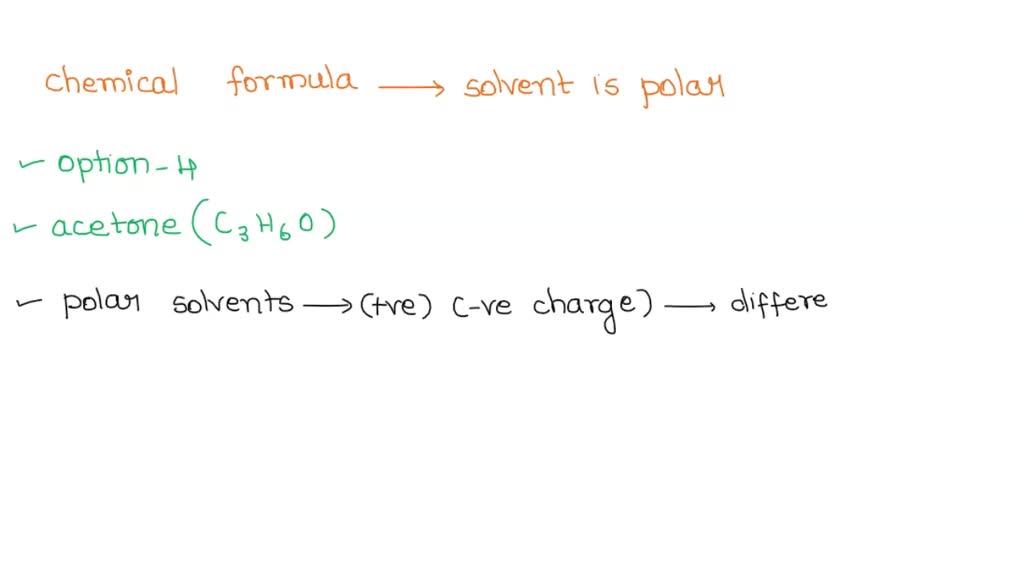 chemical formula → solvent is polar
✓ option-4
✓ acetone (C₃H₆O)
✓ polar solvents → (+ve) (-ve charge) → differe